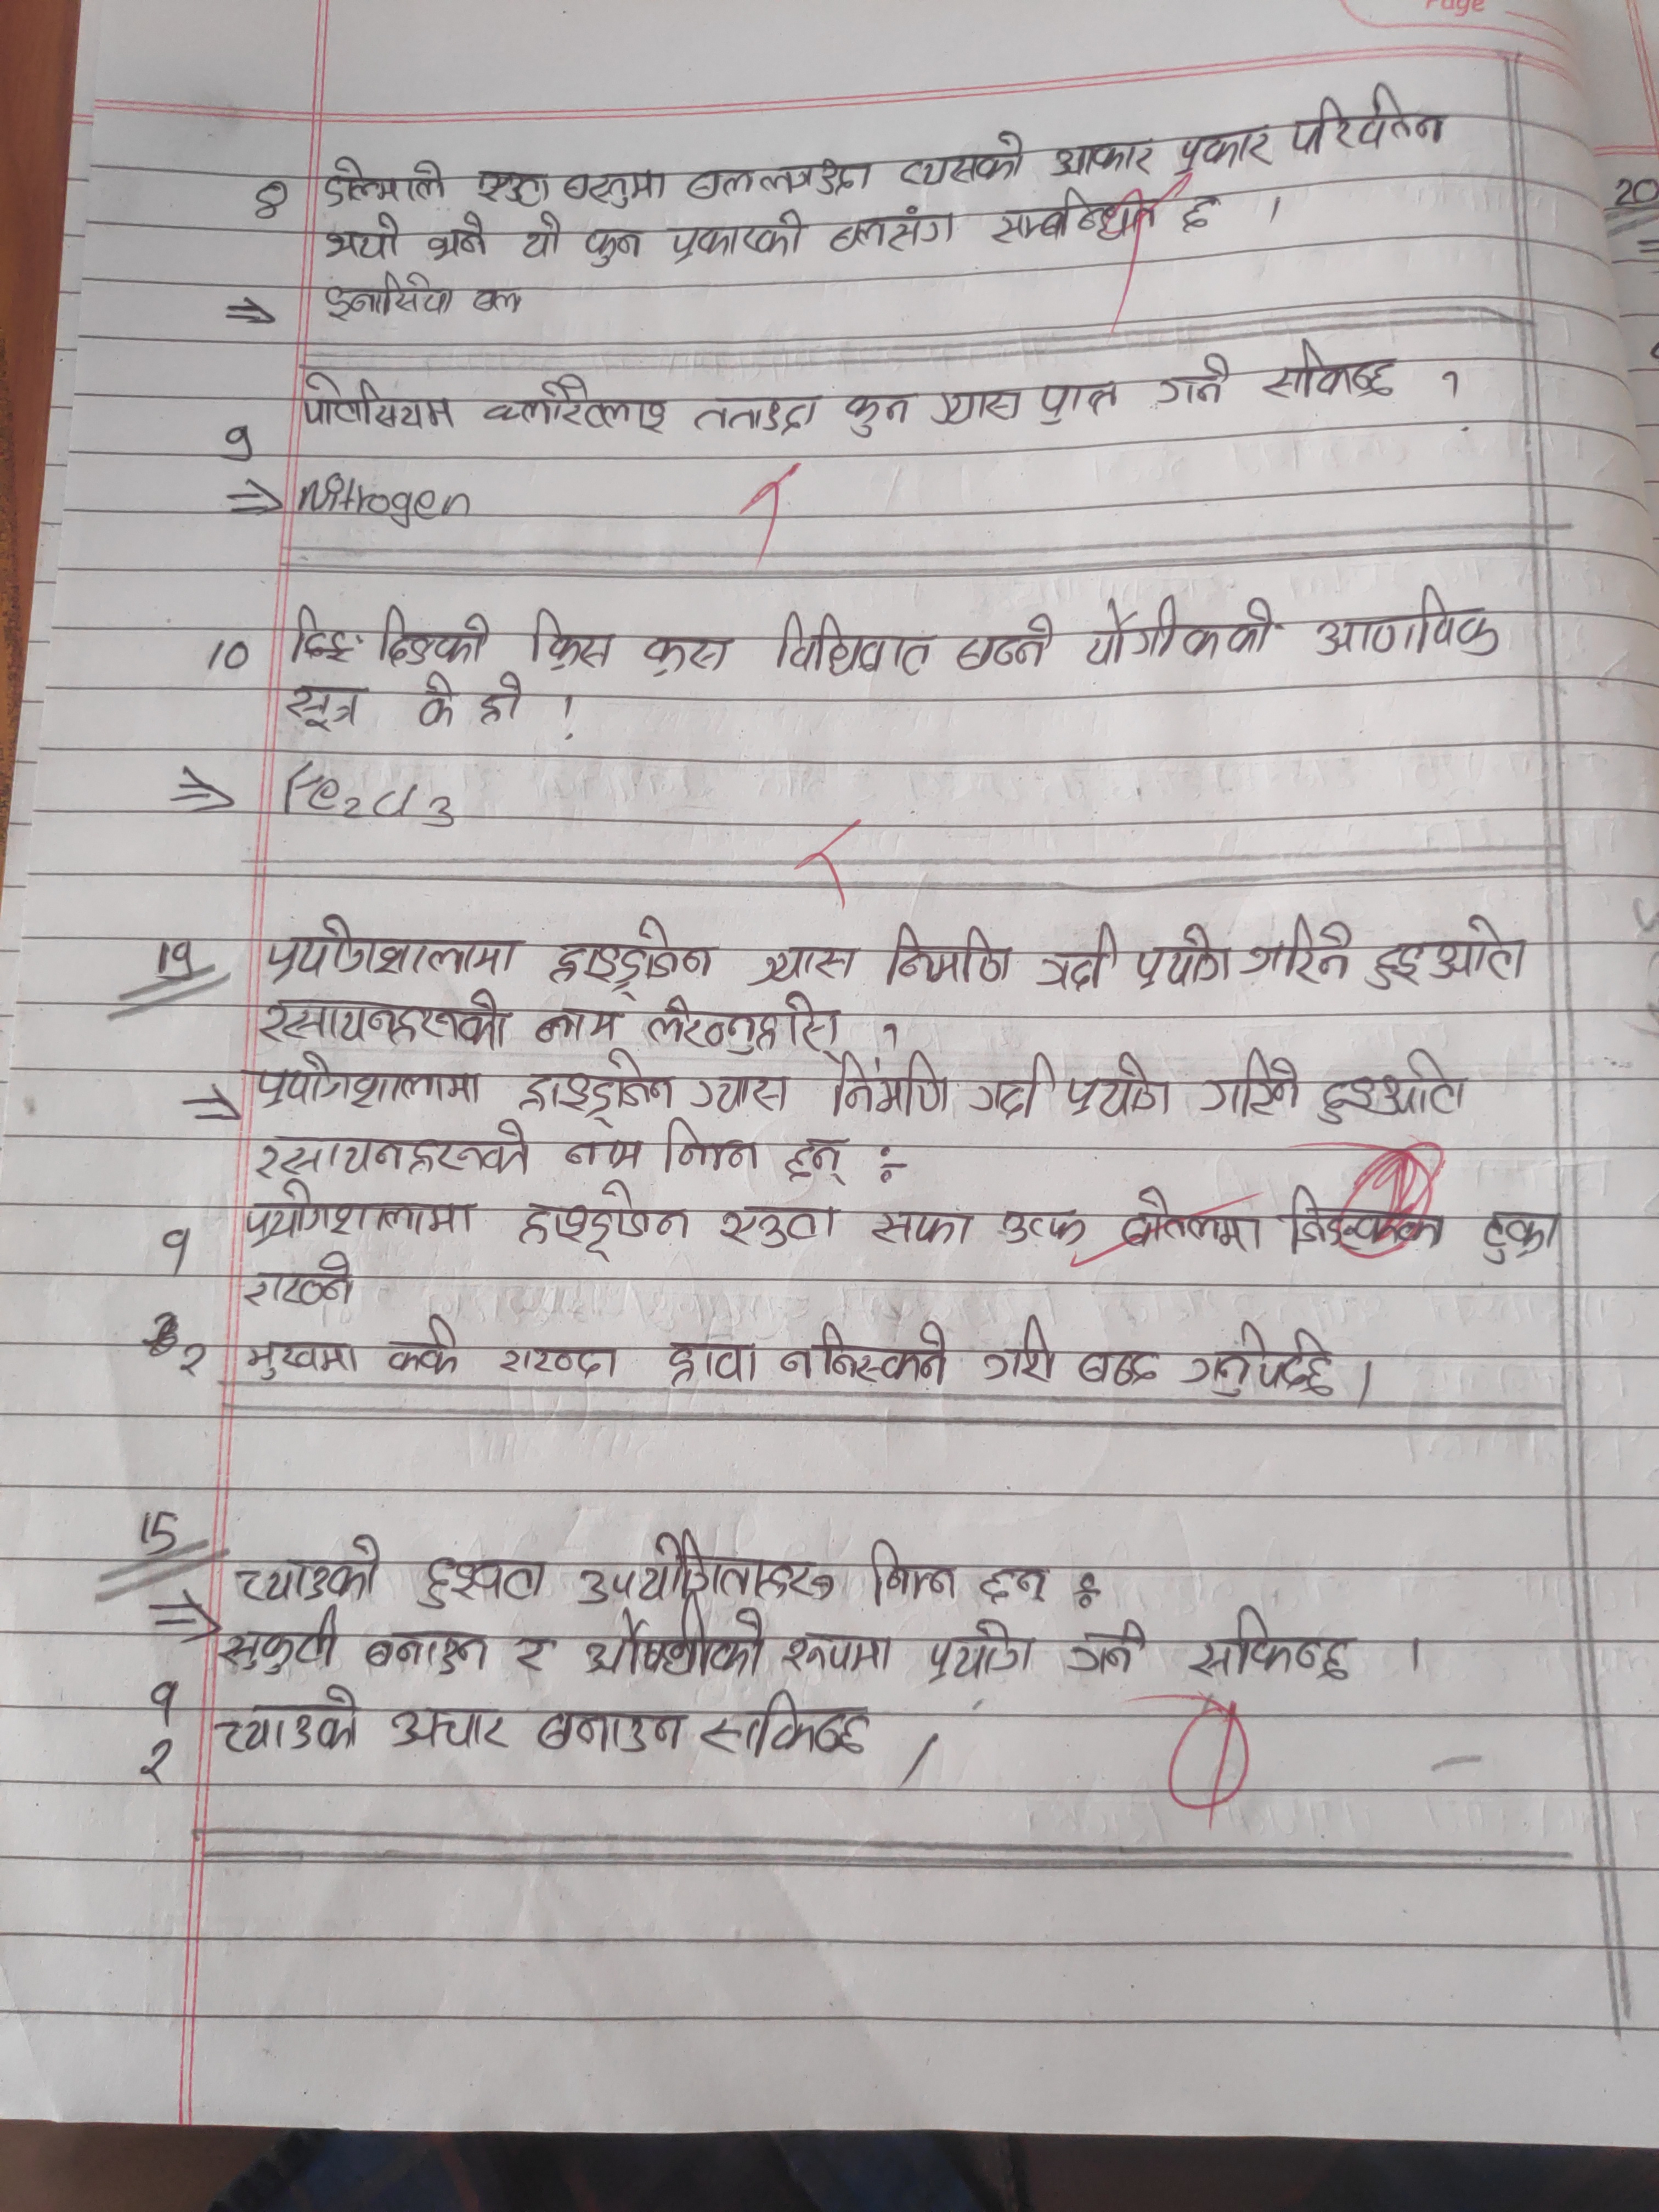 Page
8 डोल्माले एउटा वस्तुमा बल लगाउँदा त्यसको आकार प्रकार परिर्वतन
भयो भने यो कुन प्रकारको बलसंग सम्बन्धित छ ।
⇒ इनर्सिया बल
9 पोटासियम क्लोरेटलाइ तताउदा कुन ग्यास प्राप्त गर्न सकिन्छ ?
⇒ Nitrogen
10 क्रिस क्रस विधिबाट बन्ने यौगीकको आणविक
सूत्र के हो !
⇒ Fe2Cl3
19 प्रयोगशालामा हाइड्रोजेन ग्यास निर्माण गर्दा प्रयोग गरिने दुइओटा
रसायनहरूको नाम लेख्नुहोस् ?
⇒ प्रयोगशालामा हाइड्रोजेन ग्यास निर्माण गर्दा प्रयोग गरिने दुइओटा
रसायनहरूको नाम निम्न छन् :-
१ प्रयोगशालामा हाइड्रोजेन एउटा सफा उल्फ बोतलमा जिङ्कका टुक्रा
राख्ने
२ मुखमा कर्क राख्दा हावा ननिस्कने गरी बन्द गर्नुपर्दछ ।
15
⇒ च्याउको दुइवटा उपयोगिताहरू निम्न छन् :-
१ सुकुटी बनाउन र औषधीको रूपमा प्रयोग गर्न सकिन्छ ।
२ च्याउको अचार बनाउन सकिन्छ ।
20